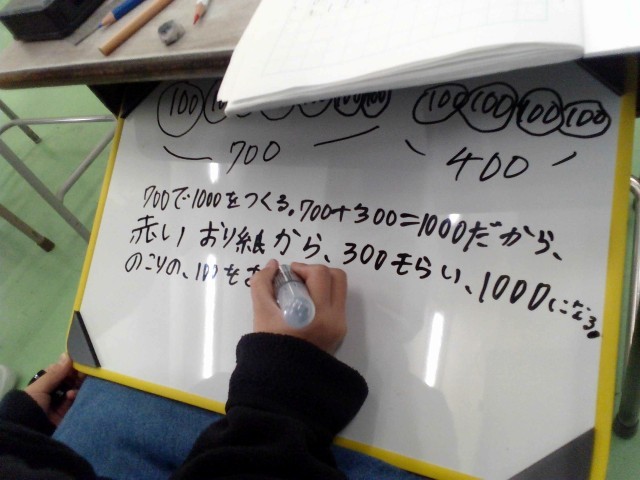 100 100 100 100 100 100 100 100
700 400
700で1000をつくる。700+300=1000だから、
赤いおり紙から、300もらい、1000になる。
のこりの、100をさ